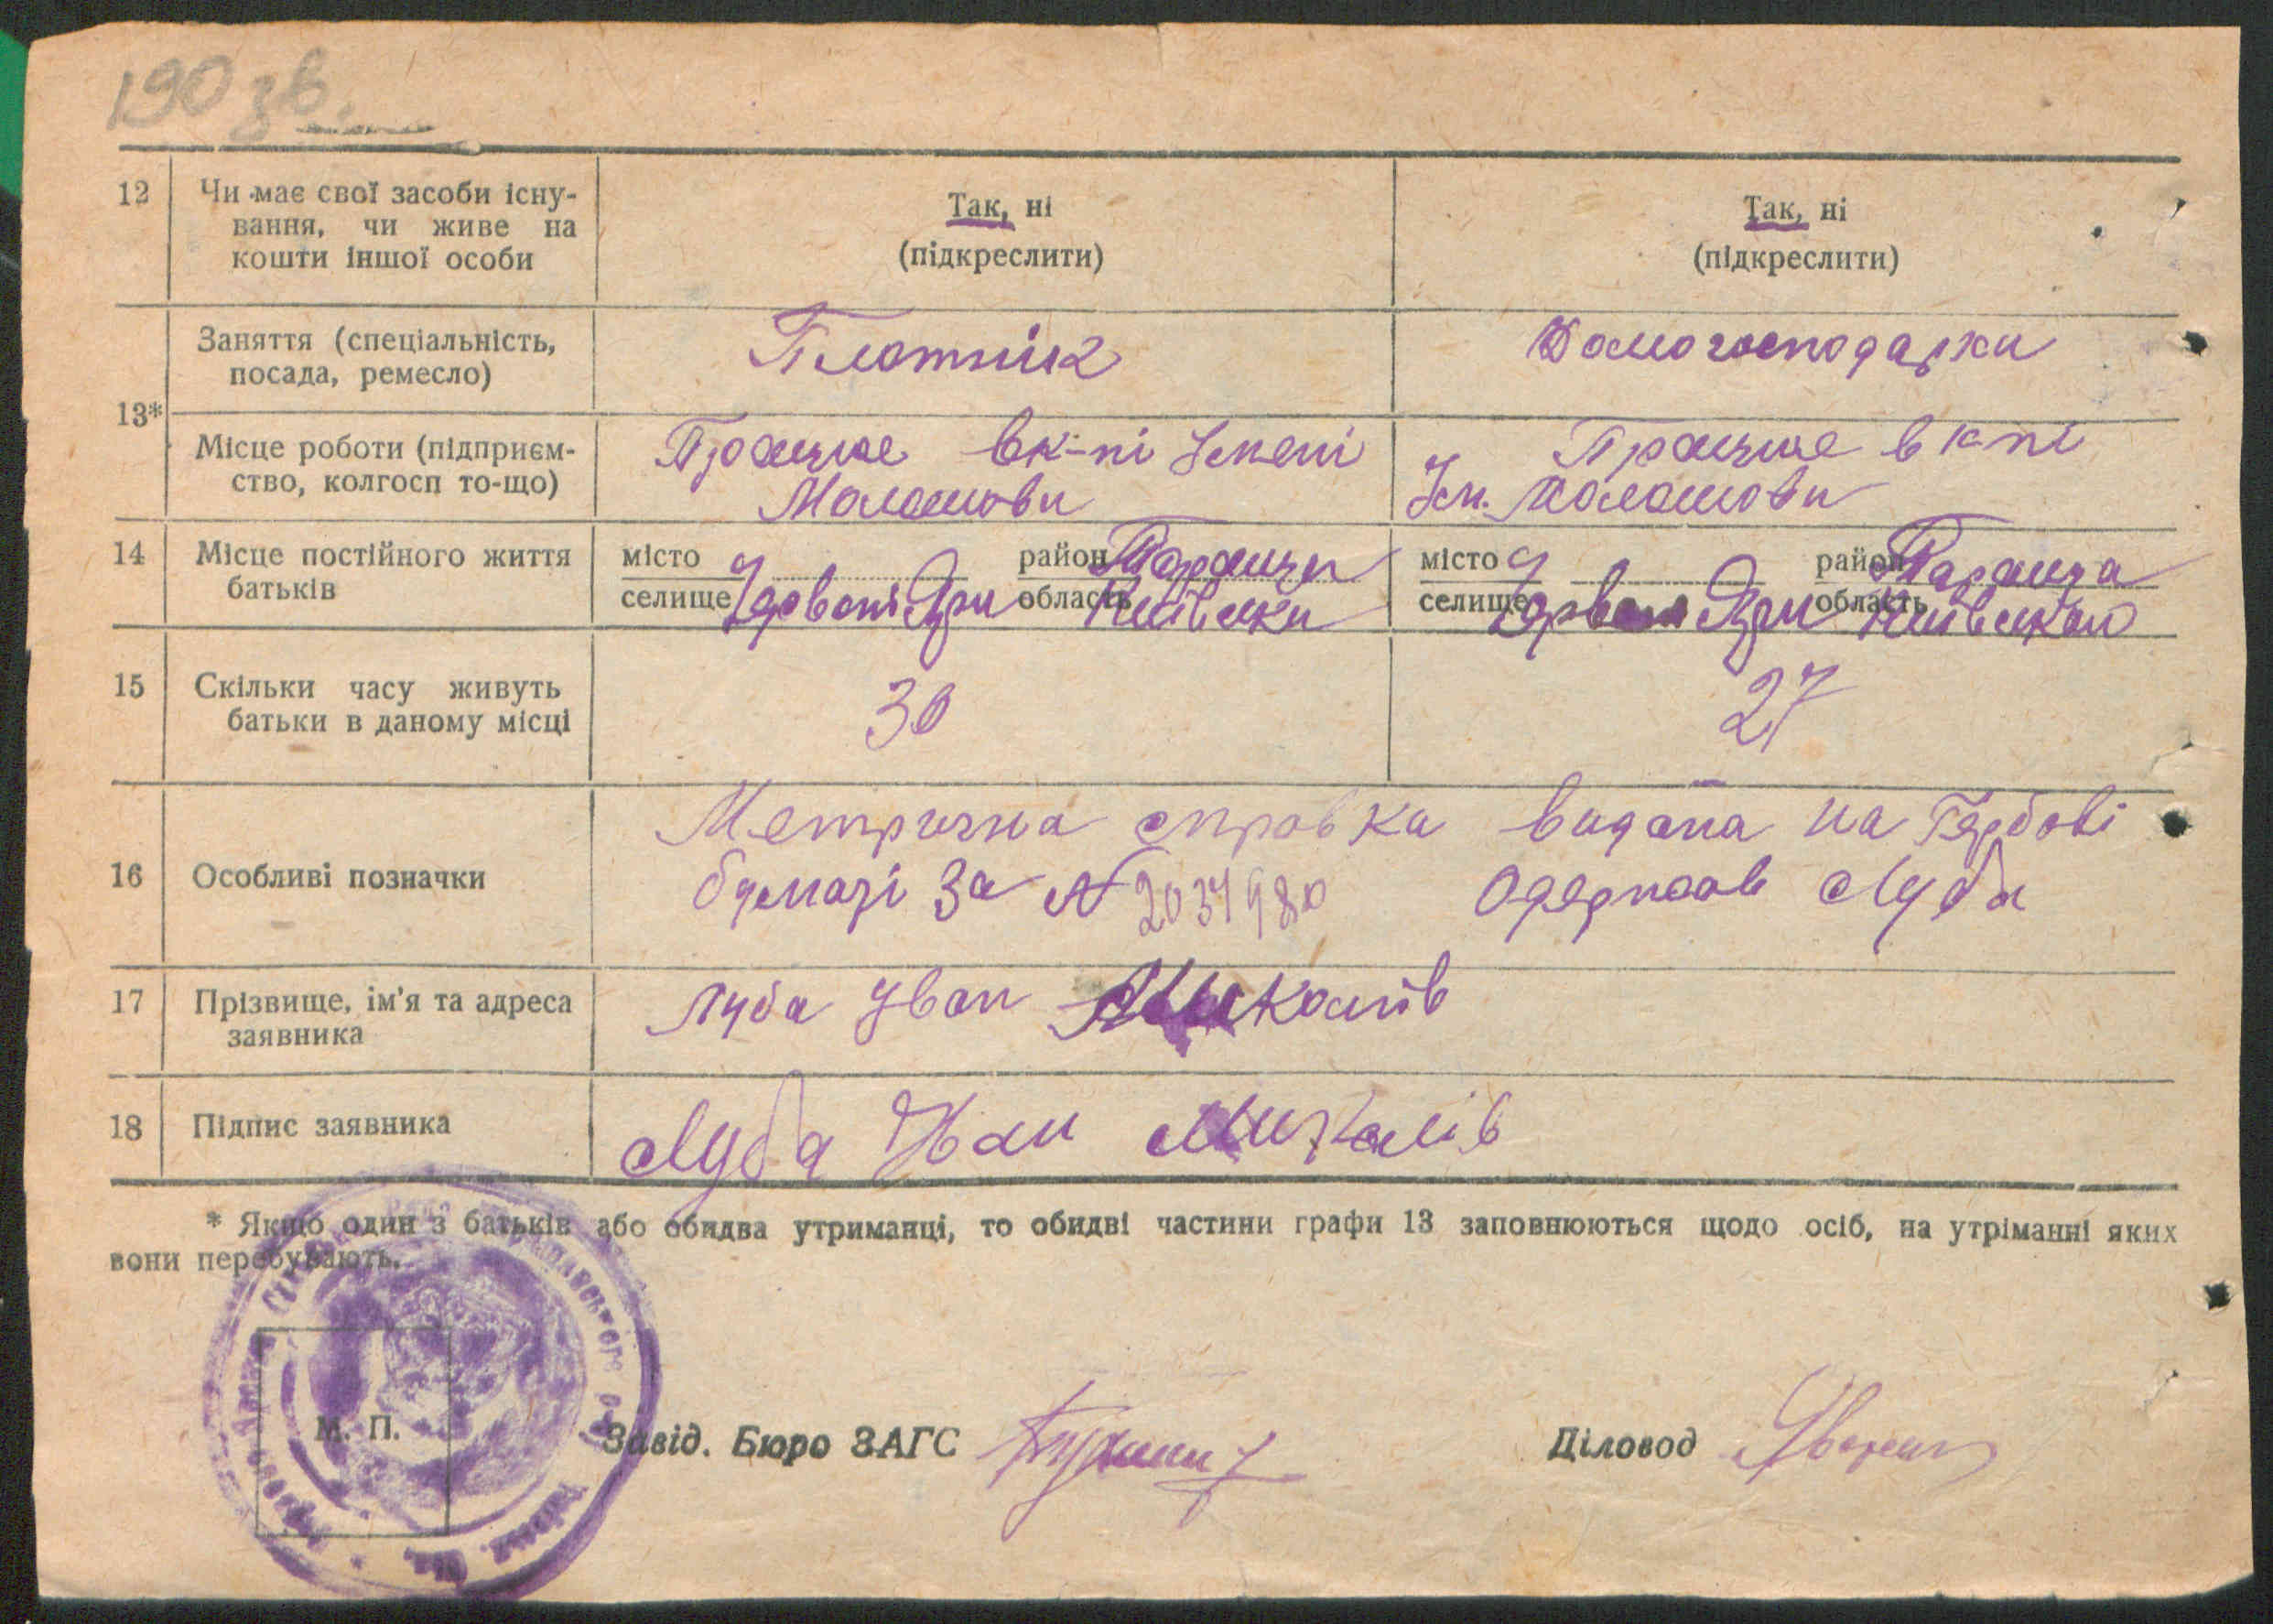 190 зв.
12 Чи має свої засоби існу-
вання, чи живе на
кошти іншої особи
Так, ні
(підкреслити)
Так, ні
(підкреслити)
13*
Заняття (спеціальність,
посада, ремесло)
Плотнік
Домогосподарки
Місце роботи (підприєм-
ство, колгосп то-що)
Працює в к-пі Імені
Молотова
Працює в к-пі
Ім. Молотова
14 Місце постійного життя
батьків
місто район Тараща
селище Яри область Київська
місто район Тараща
селище Яри область Київської
15 Скільки часу живуть
батьки в даному місці
30
27
16 Особливі позначки
Метрична справка видана на Гербові
бумазі За № 2034980 Одержав Луба
17 Прізвище, ім'я та адреса
заявника
Луба Іван Миколаїв
18 Підпис заявника
Луба Іван Миколів
* Якщо один з батьків або обидва утриманці, то обидві частини графи 13 заповнюються щодо осіб, на утріманні яких
вони перебувають.
М. П.
Завід. Бюро ЗАГС
Діловод